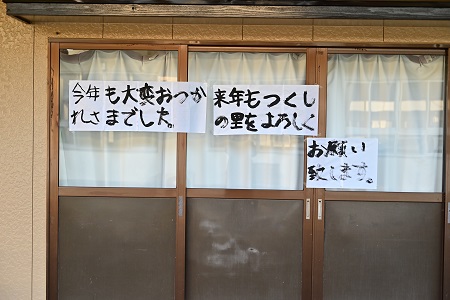 今年も大変おつか
れさまでした。
来年もつくし
の里をよろしく
お願い
致します。